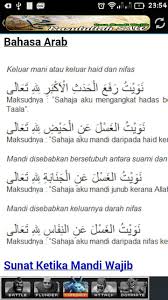 23:54
Bahasa Arab
Keluar mani atau keluar haid dan nifas
نَوَيْتُ رَفْعَ الْحَدَثِ الْأَكْبَرِ لِلّٰهِ تَعَالَى
Maksudnya : "Sahaja aku mengangkat hadas b
Taala".
نَوَيْتُ الْغُسْلَ عَنِ الْحَيْضِ لِلّٰهِ تَعَالَى
Maksudnya : "Sahaja aku mandi daripada haid ke
Mandi disebabkan bersetubuh antara suami dan
نَوَيْتُ الْغُسْلَ عَنِ الْجَنَابَةِ لِلّٰهِ تَعَالَى
Maksudnya : "Sahaja aku mandi junub kerana Allah
Mandi disebabkan keluarnya darah nifas
نَوَيْتُ الْغُسْلَ عَنِ النِّفَاسِ لِلّٰهِ تَعَالَى
Maksudnya : "Sahaja aku mandi daripada nifas ke
Sunat Ketika Mandi Wajib
BATTLE
PLUNDER
ATTACK